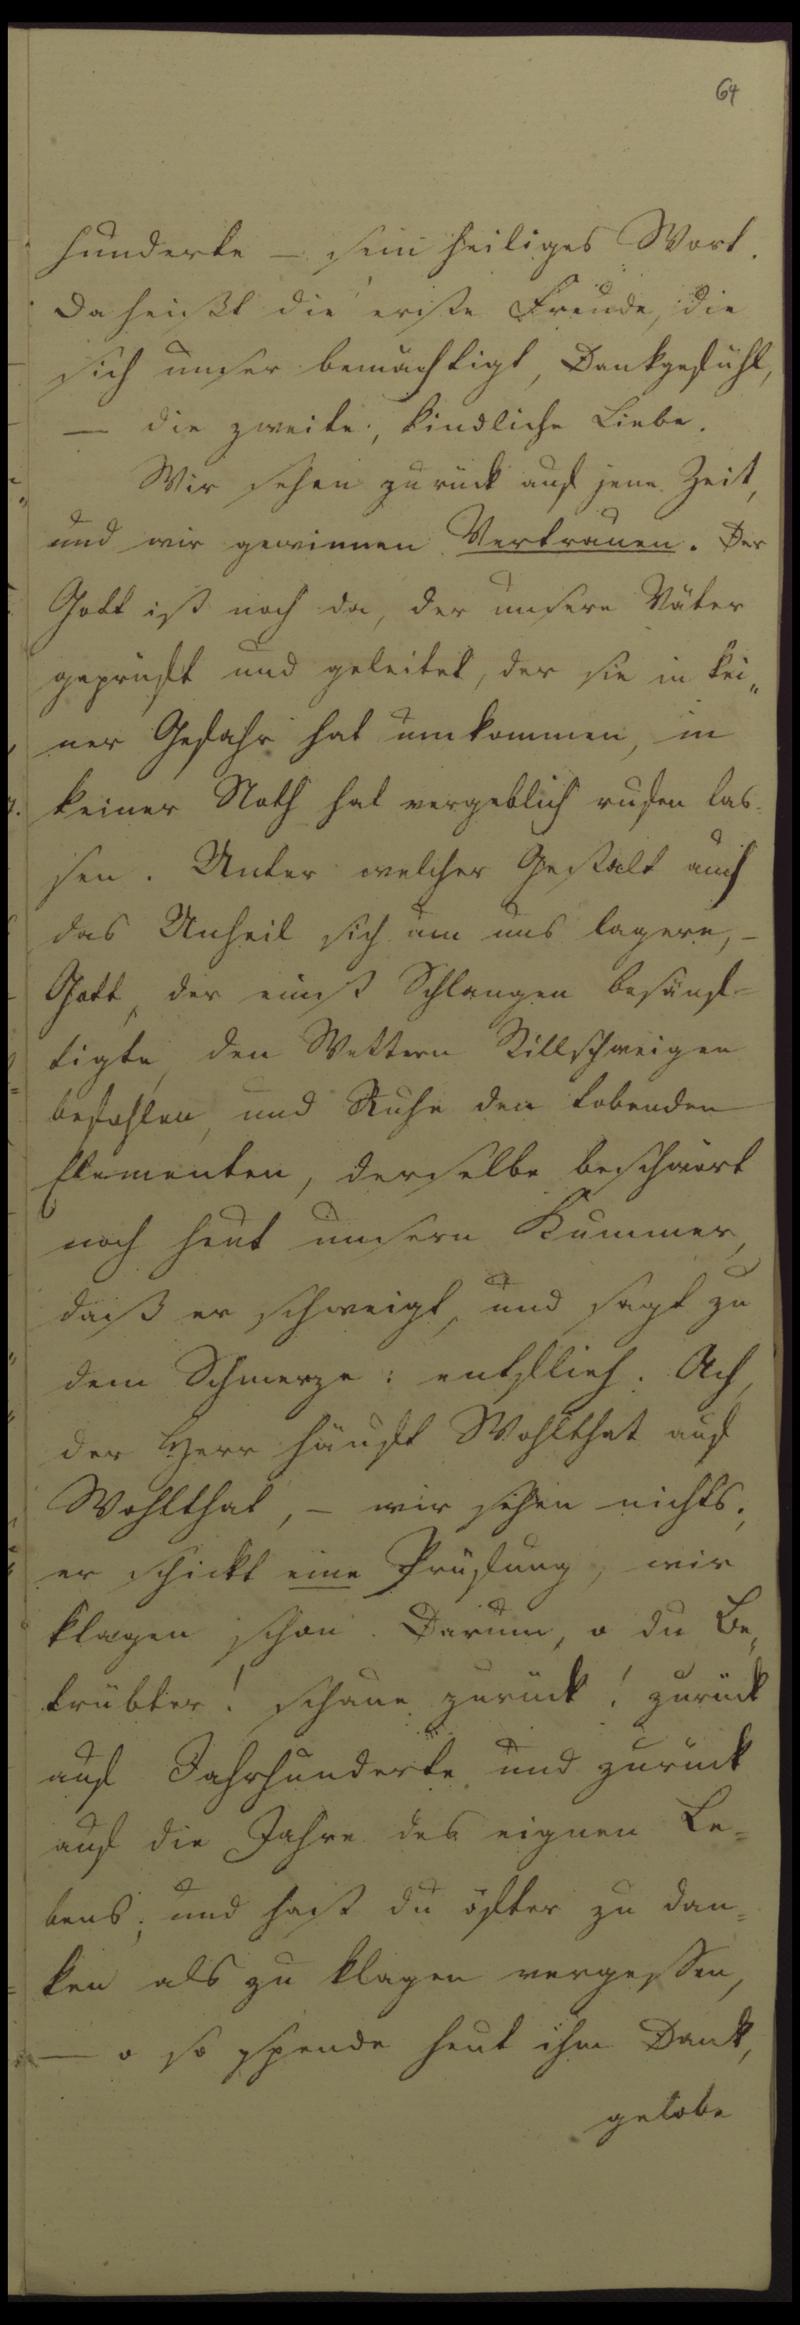 64
hunderte — sein heiliges Wort.
Da heißt die erste Freude, die
sich unser bemächtigt, Dankgefühl,
— die zweite, kindliche Liebe.
Wir sehen zurück auf jene Zeit,
und wir gewinnen Vertrauen. Der
Gott ist noch da, der unsere Väter
geprüft und geleitet, der sie in kei„
ner Gefahr hat umkommen, in
keiner Noth hat vergeblich rufen las-
sen. Unter welcher Gestalt auch
das Unheil sich um uns lagere, —
Gott, der einst Schlangen besänf=
tigte, den Wettern Stillschweigen
befohlen, und Ruhe den tobenden
Elementen, derselbe beschwört
noch heut unsern Kummer,
daß er schweigt, und sagt zu
dem Schmerze: entflieh. Ach,
der Herr häuft Wohlthat auf
Wohlthat, — wir sehen nichts;
er schickt eine Prüfung, wir
klagen schon. Darum, o du Be„
trübter! schaue zurück! zurück
auf Jahrhunderte und zurück
auf die Jahre des eignen Le=
bens; und hast du öfter zu dan=
ken als zu klagen vergessen,
— o so spende heut ihm Dank,
gelobe